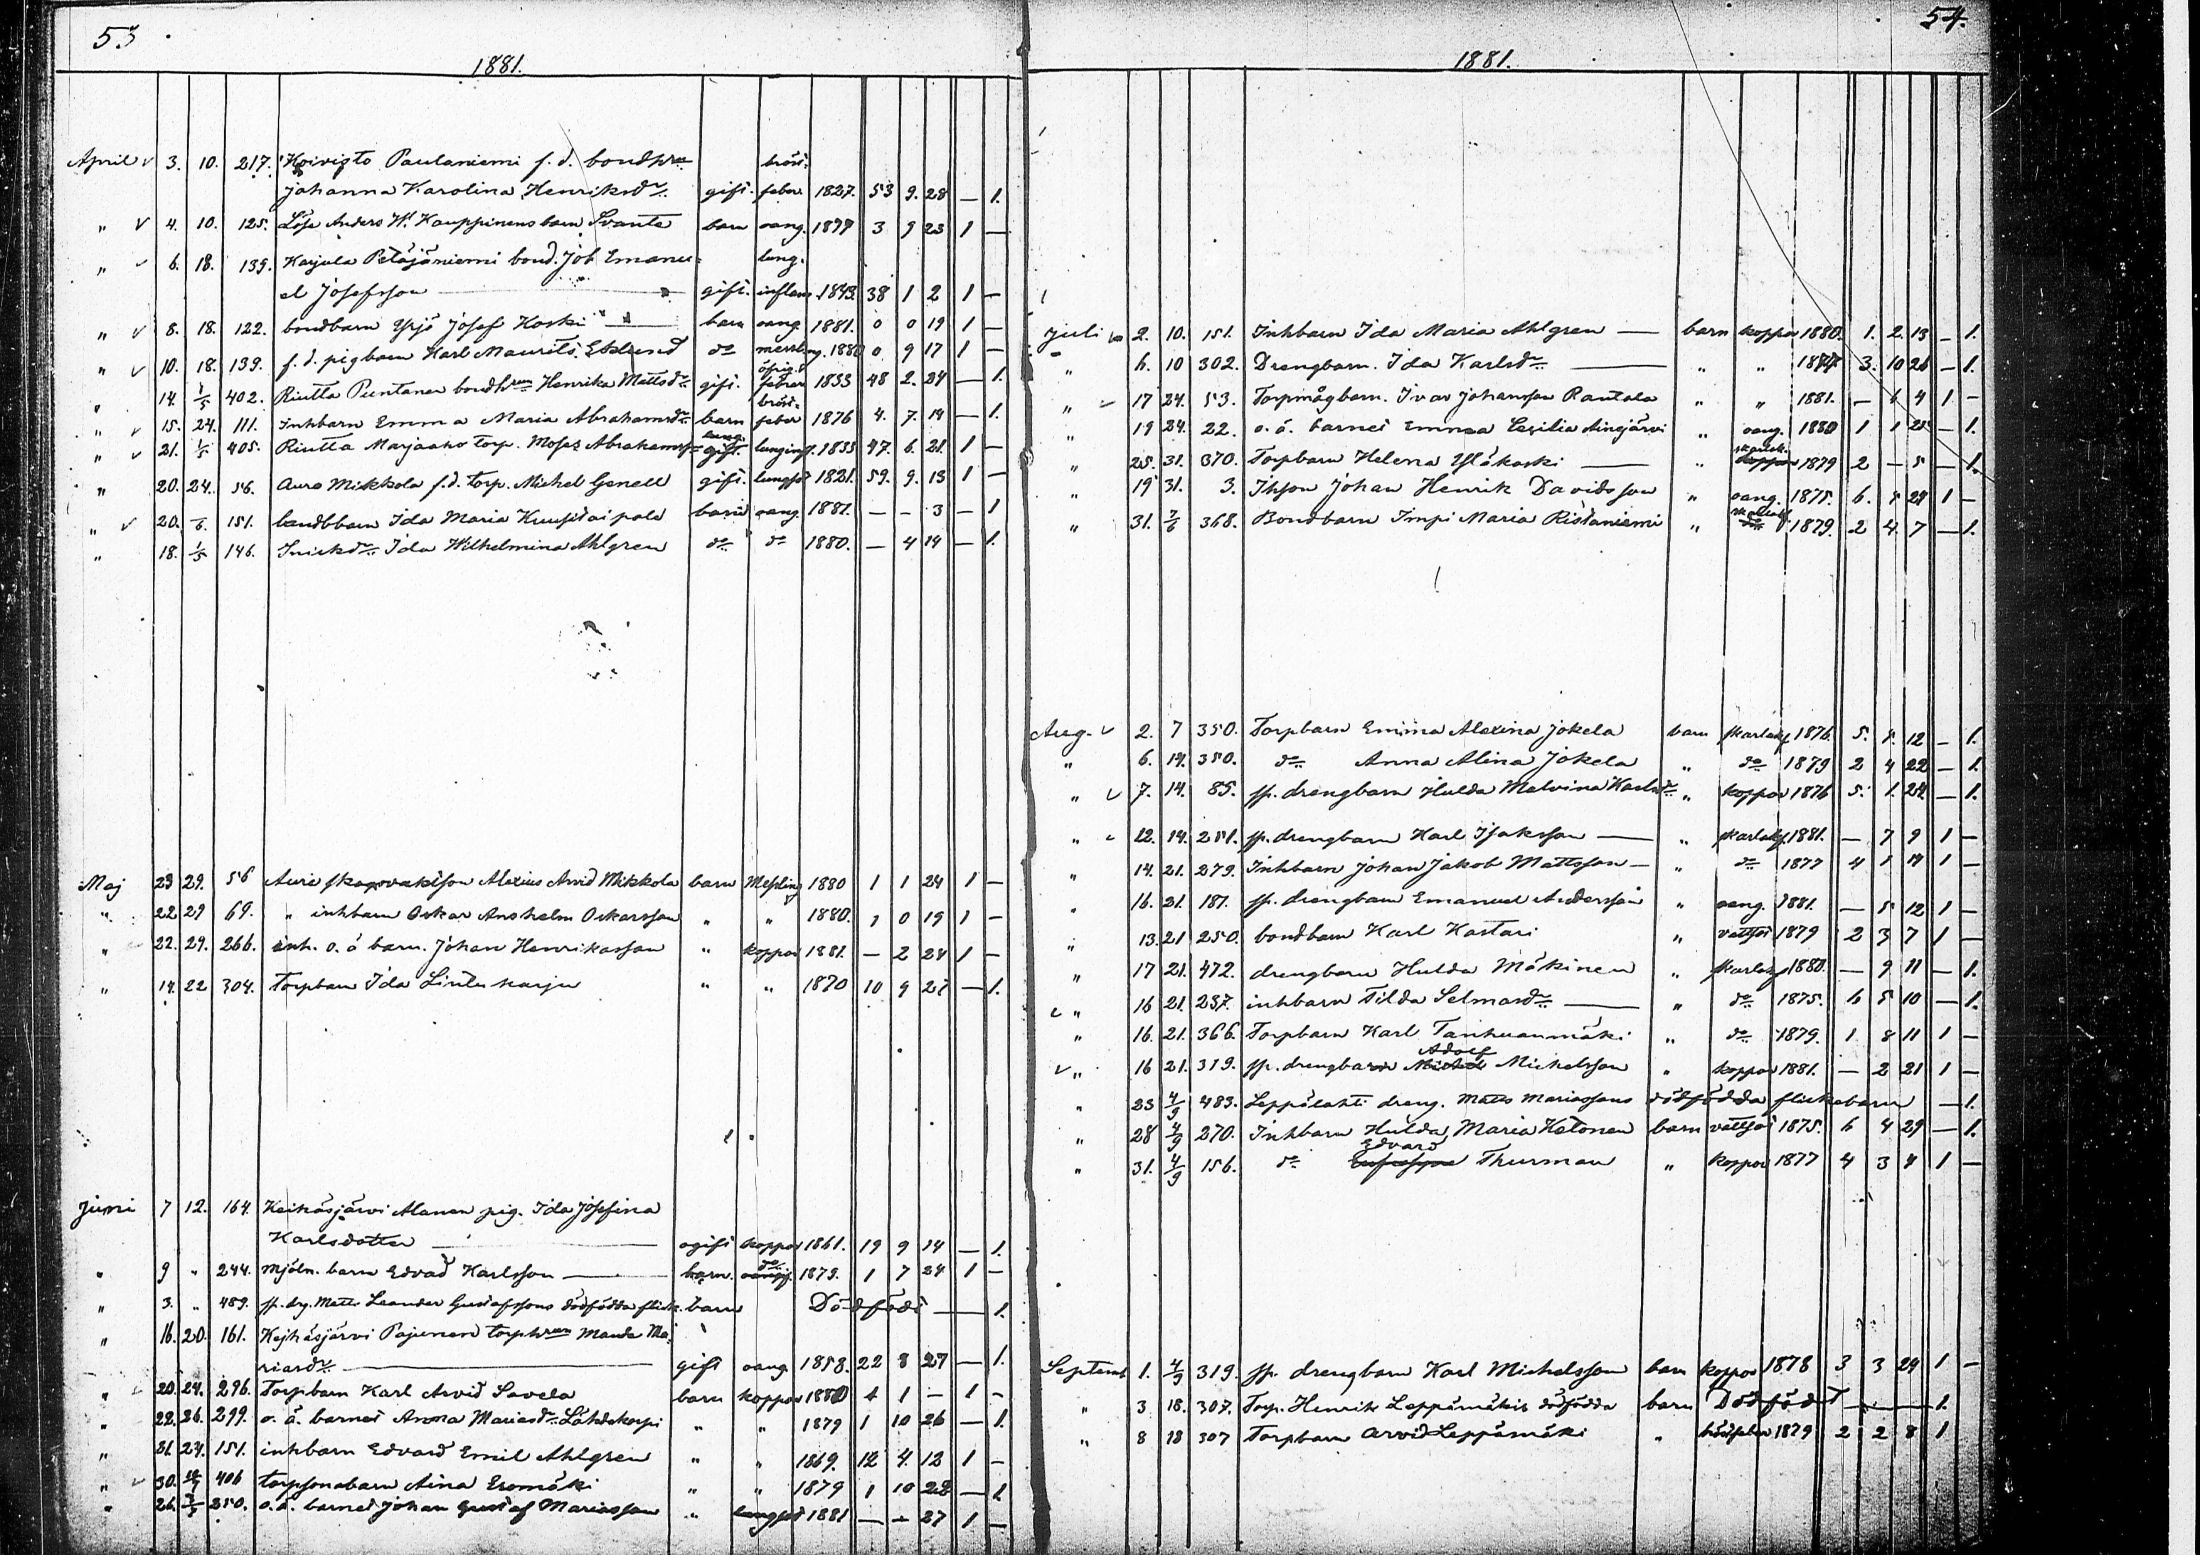 53
1881.
April 3. 10. 217. Koivisto Paulaniemi f.d. bondhru bröst-
Johanna Karolina Henriksdr gift. feber 1827. 53 9. 28 — 1.
" 4. 10. 125. Löse Anders W. Kauppinens barn Svante barn oang. 1877 3 9 23 1 —
" 6. 18. 139. Karjula Petäjäniemi bond. Joh Emanu- lung-
el Josefsson gift. inflam. 1843. 38 1 2 1 —
" 8. 18. 122. bondbarn Yrjö Josef Koski barn oang 1881. 0 0 19 1 —
" 10. 18. 139. f.d. pigbarn Karl Maurits Eklund do messling. 1880 0 9 17 1 —
" 14. 1/5 402. Riutta Puntanen bondhrun Henrika Mattsdr gift. feber 1833 48 2. 24 — 1.
" 15. 24. 111. Inhbarn Emma Maria Abrahamsdr barn bröst-feber 1876 4. 7. 14 — 1.
" 21. 1/5 405. Riutta Marjaaho torp. Moses Abrahamss gift. lunginf. 1833 47. 6. 21. 1 —
" 20. 24. 56. Aura Mikkola f.d. torp. Michel Genell gift. lungsot 1821. 59. 9. 13 1 —
" 20. /6 151. landbbarn Ida Maria Kuusitaipale barn oang 1881. — — 3 — 1
" 18. 1/5 146. Snickdr Ida Wilhelmina Ahlgren do do 1880. — 4 14 — 1.
Maj 23 29. 56 Aura skogvaktson Alexius Arvid Mikkola barn Messling 1880 1 1 24 1 —
" 22 29 69. " inhbarn Oskar Anshelm Oskarsson " " 1880. 1 0 19 1 —
" 22. 29. 266. inh. o.ä barn. Johan Henriksson " koppor 1881. — 2 24 1 —
" 14. 22 304. Torpbarn Ida Lintuharju " " 1870 10 9 27 — 1.
Juni 7 12. 164. Keikäsjärvi Alanen pig. Ida Josefina
Karlsdotter ogift koppor 1861. 19 9 14 — 1.
" 9 " 244. Mjöln. barn Edvad Karlsson barn. do 1879. 1 7 24 1 —
" 3. " 489. sp. dg. Matts Leander Gustafssons dödfödda flick. barn Dödfödt — 1.
" 16. 20. 161. Kejhäsjärvi Pajunen torphrun Manda Ma-
riasdr gift oang. 1858. 22 8 27 — 1.
" 20. 24. 296. Torpbarn Karl Arvid Savela barn koppor 1880 1 1 — 1 —
" 22. 26. 299. o.ä. barnet Anna Mariasdr Lähdekorpi " " 1879 1 10 26 — 1.
" 21. 24. 151. inhbarn Edvard Emil Ahlgren " " 1869. 12 4. 12 1 —
" 30. 406 torpsonabarn Aina Eromäki " " 1879 1 10 28 — 1
" 26. 250. o.ä. barnet Johan Gustaf Mariasson " lungsot 1881 — — 27 1 —
54.
1881.
Juli 2. 10. 151. Inhbarn Ida Maria Ahlgren barn koppor 1880. 1. 2. 13 — 1.
" 6. 10 302. Drengbarn. Ida Karlsdr " " 1877 3. 10 26 — 1.
" 17 24. 53. Torpmågbarn. Ivar Johansson Rantala " " 1881. — 6 4 1 —
" 19 24. 22. o.ä. barnet Emma Cecilia Ainejärvi " oang. 1880 1 1 23 — 1.
" 25. 31. 370. Torpbarn Helena Yläkoski " skarlak. 1879 2 — 5 — 1.
" 19 31. 3. Ihson Johan Henrik Davidsson " oang. 1875. 6. 5 24 1 —
" 31. 7/6 368. Bondbarn Impi Maria Ristaniemi " skarlak. 1879. 2 4. 7 — 1.
Aug. 2. 7 350. Torpbarn Emma Alexina Jokela barn skarlakf 1876. 5. 5. 12 — 1.
" 6. 14. 350. do Anna Alina Jokela " do 1879 2 4 22 — 1.
" 7. 14. 85. sp. drengbarn Hulda Malvina Karlsdr " koppor 1876 5. 1. 24. — 1.
" 12. 14. 251. sp. drengbarn Karl Isaksson " skarlakf. 1881. — 7 9 1 —
" 14. 21. 279. Inhbarn Johan Jakob Mattsson " do 1877 4 1 14 1 —
" 16. 21. 187. sp. drengbarn Emanuel Andersson " oang. 1881. — 5 12 1 —
" 13. 21 250. bondbarn Karl Kastari " vattsot 1879 2 3 7 1 —
" 17 21. 472. drengbarn Hulda Mäkinen " skarlakf 1880. — 9 11 — 1.
" 16 21. 237. inhbarn Tilda Selmasdr " do 1875. 6 5 10 — 1.
" 16. 21. 366. Torpbarn Karl Tanhuanmäki " do 1879. 1 8 11 1 —
Adolf
" 16 21. 319. sp. drengbarn Michel Michelsson " koppor 1881. — 2 21 1 —
" 23 4/9 483. Leppälahti dreng. Matts Mariassons dödfödda flickebarn — 1.
" 28 4/9 270. Inhbarn Hulda Maria Ketonen barn vattsot 1875. 6 4 29 — 1.
Edvard
" 31. 4/9 156. do Thurman " koppor 1877 4 3 4 1 —
Septemb 1. 4/9 319. sp. drengbarn Karl Michelsson barn koppor 1878 3 3 29 1 —
" 3 18. 307. Torp. Henrik Leppämäkis dödfödda barn Dödfödt — 1.
" 8 18 307 Torpbarn Arvid Leppämäki " bröstfeber 1879 2 2 8 1